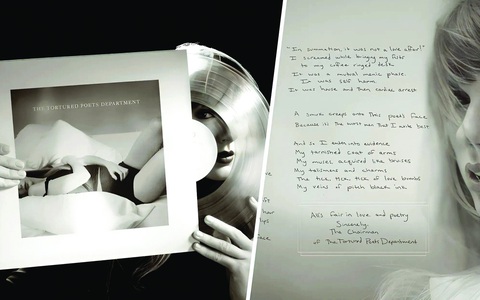 THE TORTURED POETS DEPARTMENT
"In summation, it was not a love affair!"
I screamed while bringing my fists
to my coffee ringed desk
It was a mutual manic phase.
It was self harm.
It was house and then cardiac arrest.
A smirk creeps onto this poet's face
Because it's the worst men that I write best.
And so I enter into evidence
My tarnished coat of arms
My muses, acquired like bruises
My talismans and charms
The tick, tick, tick of love bombs
My veins of pitch black ink
All's fair in love and poetry
Sincerely,
The Chairman
of The Tortured Poets Department